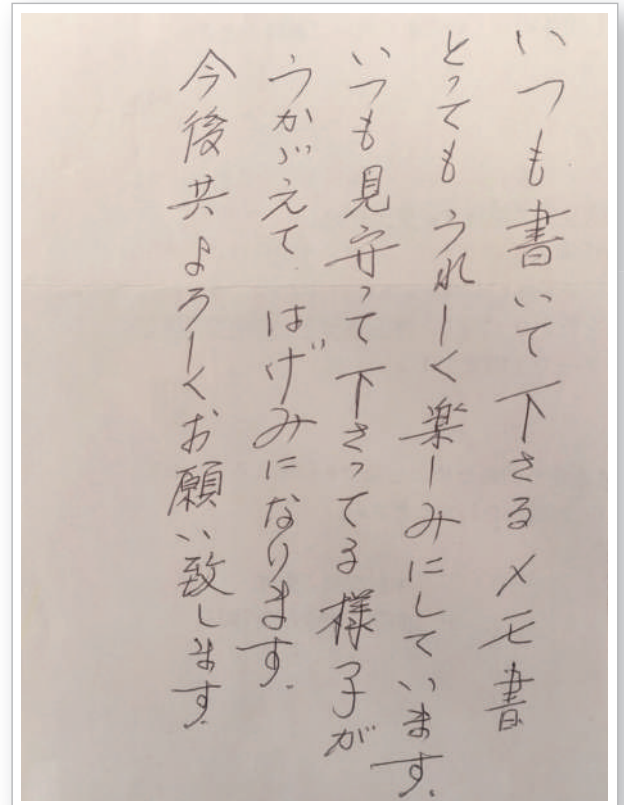 いつも書いて下さるメモ書
とってもうれしく楽しみにしています.
いつも見守って下さってる様子が
うかがえて はげみになります.
今後共よろしくお願い致します.